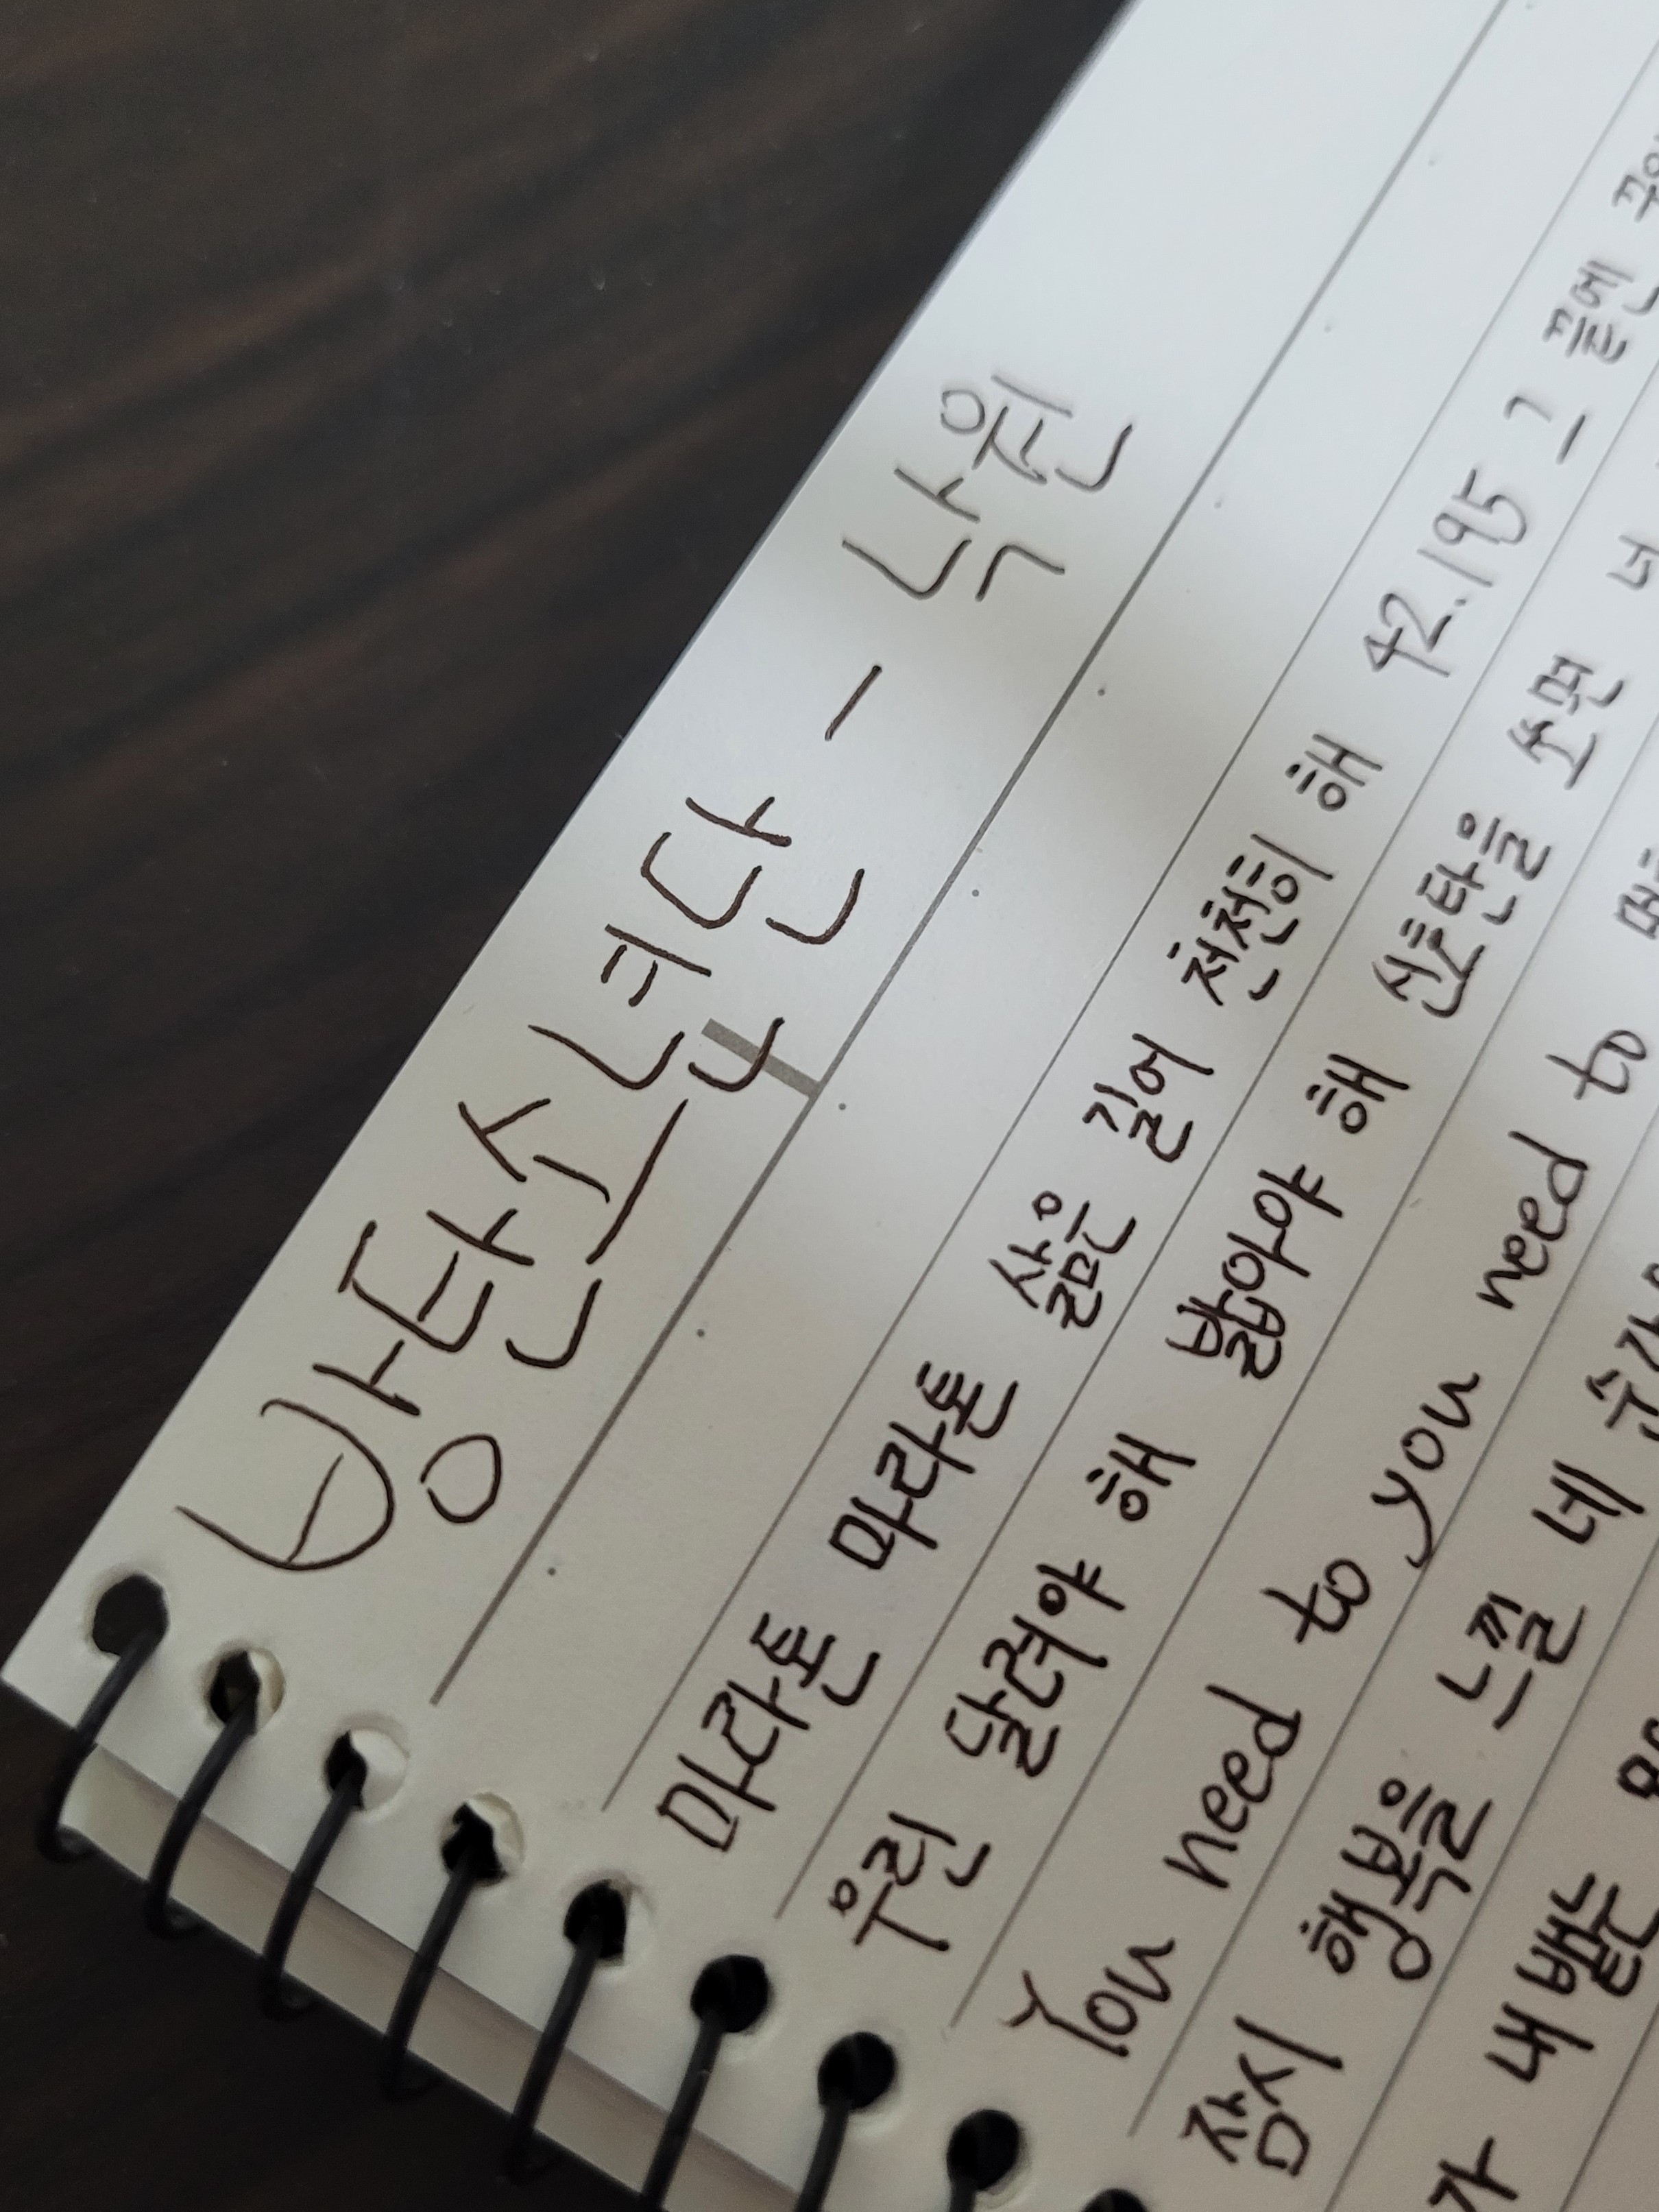 방탄소년단 - 낙원
마라톤 마라톤 삶은 길어 천천히 해 42.195 그 끝엔
우린 달려야 해 밟아야 해 신호탄을 쏘면 너
You need to you need to
잠시 행복을 느낄 네
가 내뱉는